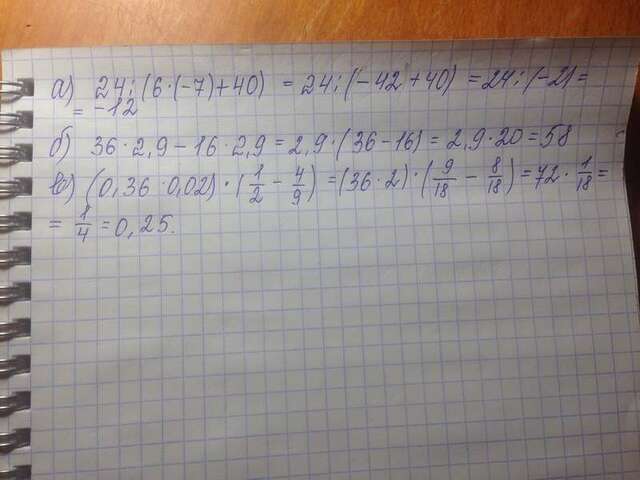 а) 24:(6·(-7)+40) = 24:(-42+40) = 24:(-2) =
= -12
б) 36·2,9 - 16·2,9 = 2,9·(36-16) = 2,9·20 = 58
в) (0,36·0,02)·(1/2 - 4/9) = (36·2)·(9/18 - 8/18) = 72·1/18 =
= 1/4 = 0,25.